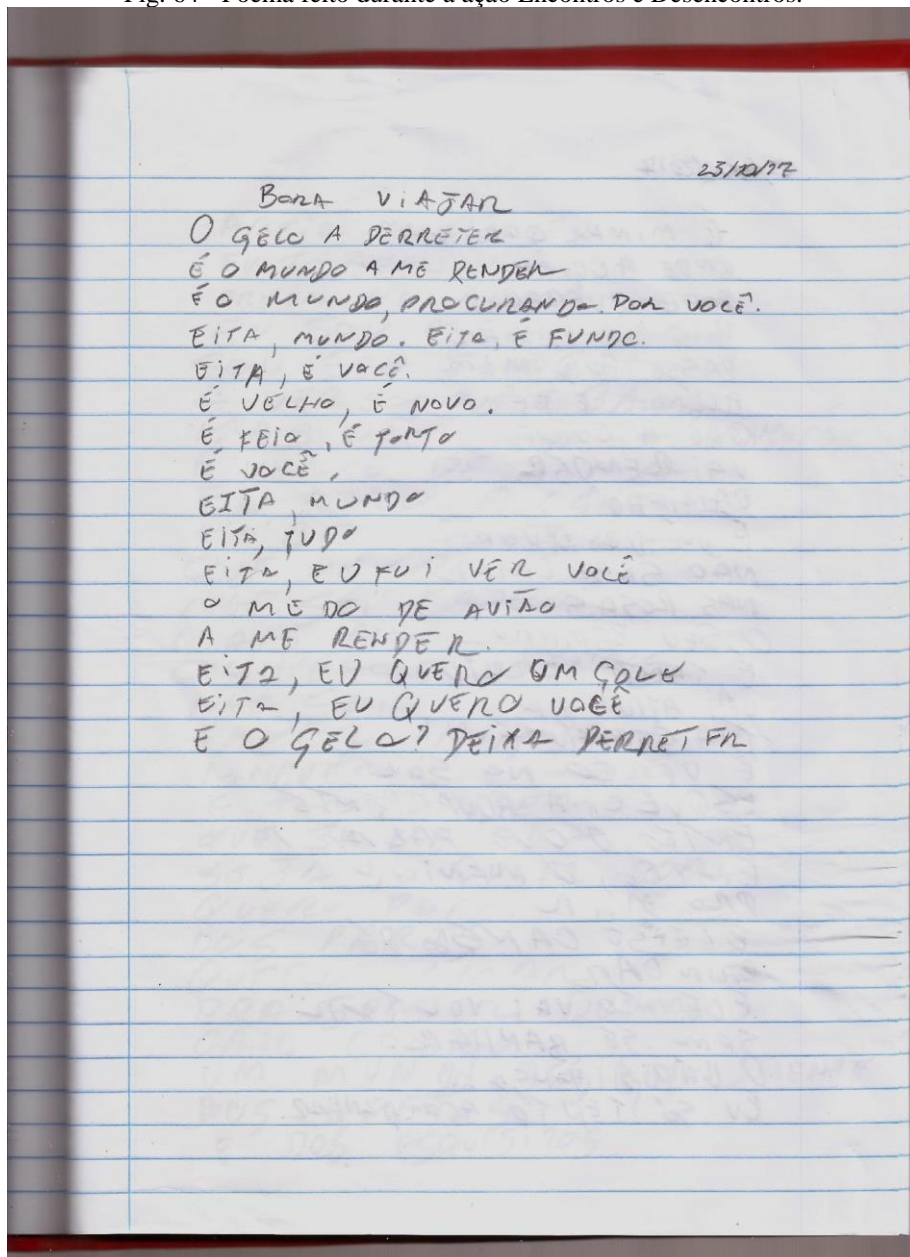 Fig. 64 - Poema feito durante a ação Encontros e Desencontros.
BORA VIAJAR
O GELO A DERRETER
É O MUNDO A ME RENDER
É O MUNDO, PROCURANDO POR VOCÊ.
EITA, MUNDO. EITA, É FUNDO.
EITA, É VOCÊ.
É VELHO, É NOVO.
É FEIO, É TORTO
É VOCÊ,
EITA, MUNDO
EITA, TUDO
EITA, EU FUI VER VOCÊ
O MEDO DE AVIÃO
A ME RENDER.
EITA, EU QUERO UM GOLE
EITA, EU QUERO VOCÊ
E O GELO? DEIXA DERRETER